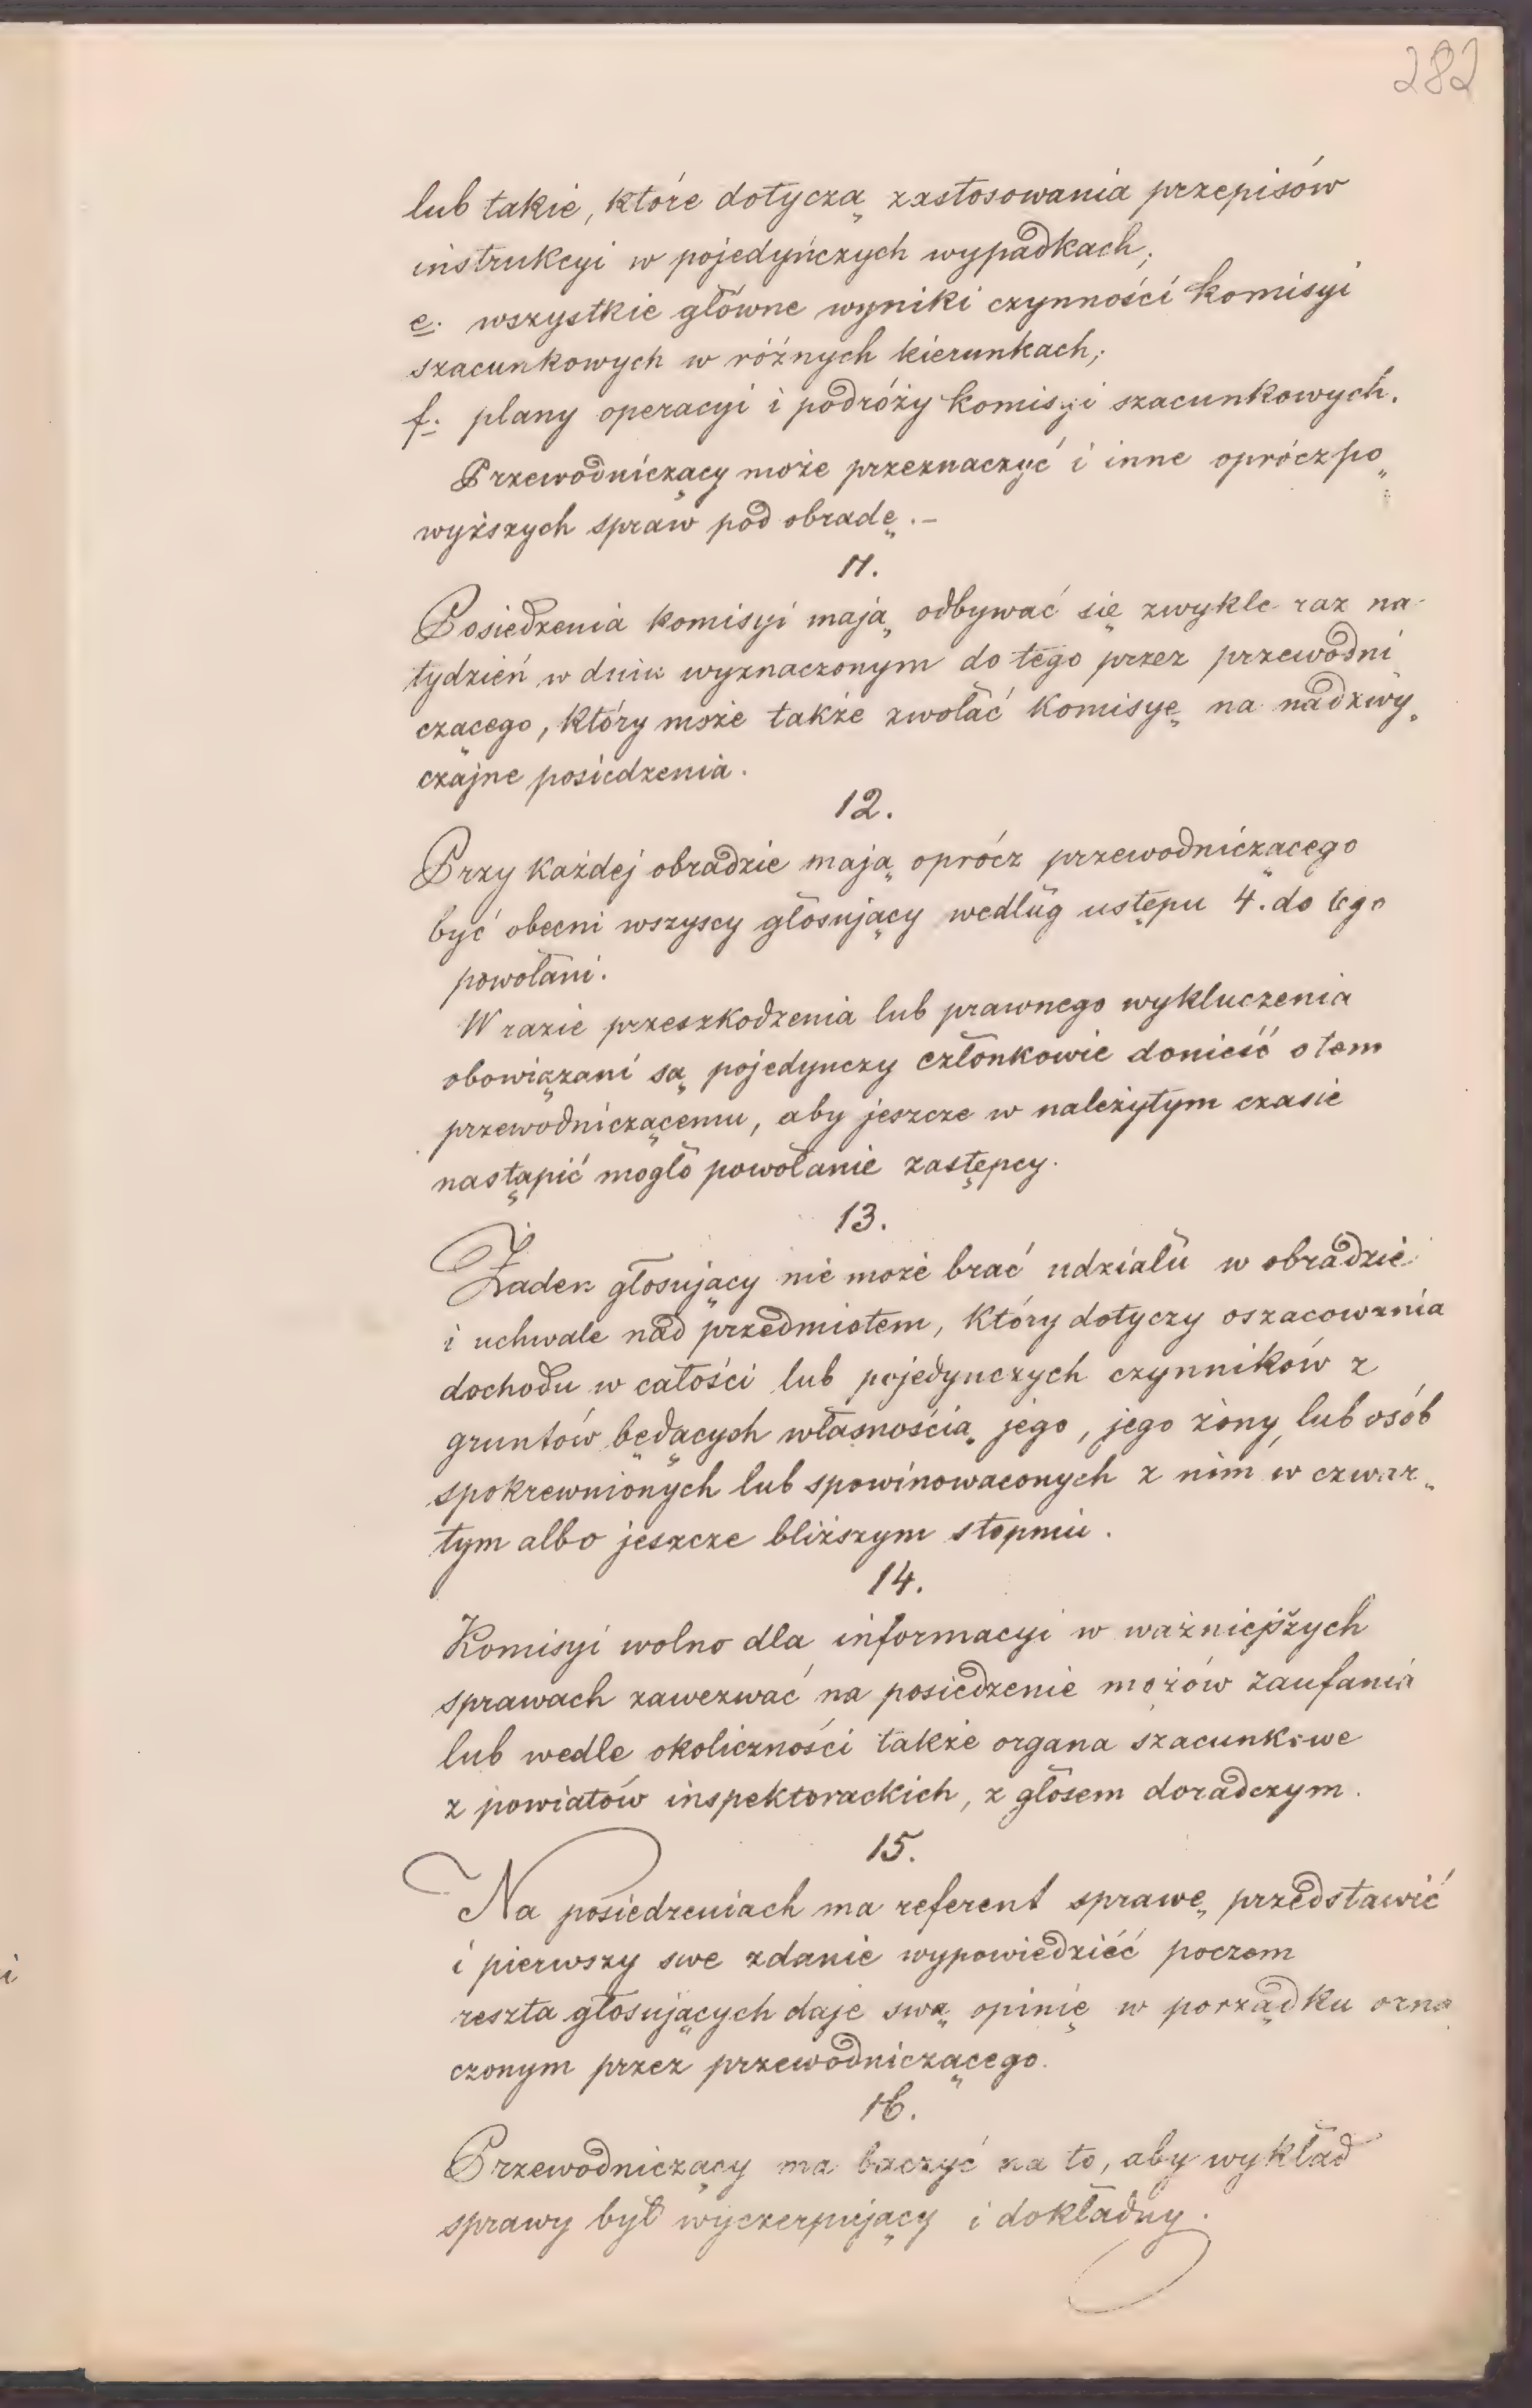 282
lub takie, które dotyczą zastosowania przepisów
instrukcyi w pojedyńczych wypadkach;
e. wszystkie główne wyniki czynności komisyi
szacunkowych w różnych kierunkach;
f. plany operacyi i podróży komisyi szacunkowych.
Przewodniczący może przeznaczyć i inne oprócz po„
wyższych spraw pod obradę.–
11.
Posiedzenia komisyi mają odbywać się zwykle raz na
tydzień w dniu wyznaczonym do tego przez przewodni
czącego, który może także zwołać komisyę na nadzwy„
czajne posiedzenia.
12.
Przy każdej obradzie mają oprócz przewodniczącego
być obecni wszyscy głosujący według ustępu 4. do tego
powołani.
W razie przeszkodzenia lub prawnego wykluczenia
obowiązani są pojedynczy członkowie donieść o tem
przewodniczącemu, aby jeszcze w należytym czasie
nastąpić mogło powołanie zastępcy.
13.
Żaden głosujący nie może brać udziału w obradzie
i uchwale nad przedmiotem, który dotyczy oszacowania
dochodu w całości lub pojedynczych czynników z
gruntów będących własnością jego, jego żony, lub osób
spokrewnionych lub spowinowaconych z nim w czwar„
tym albo jeszcze bliższym stopniu.
14.
Komisyi wolno dla informacyi w ważniejszych
sprawach zawezwać na posiedzenie mężów zaufania
lub wedle okoliczności także organa szacunkowe
z powiatów inspektorackich, z głosem doradczym.
15.
Na posiedzeniach ma referent sprawę przedstawić
i pierwszy swe zdanie wypowiedzieć poczem
reszta głosujących daje swą opinię w porządku ozna
czonym przez przewodniczącego.
16.
Przewodniczący ma baczyć na to, aby wykład
sprawy był wyczerpujący i dokładny.
i